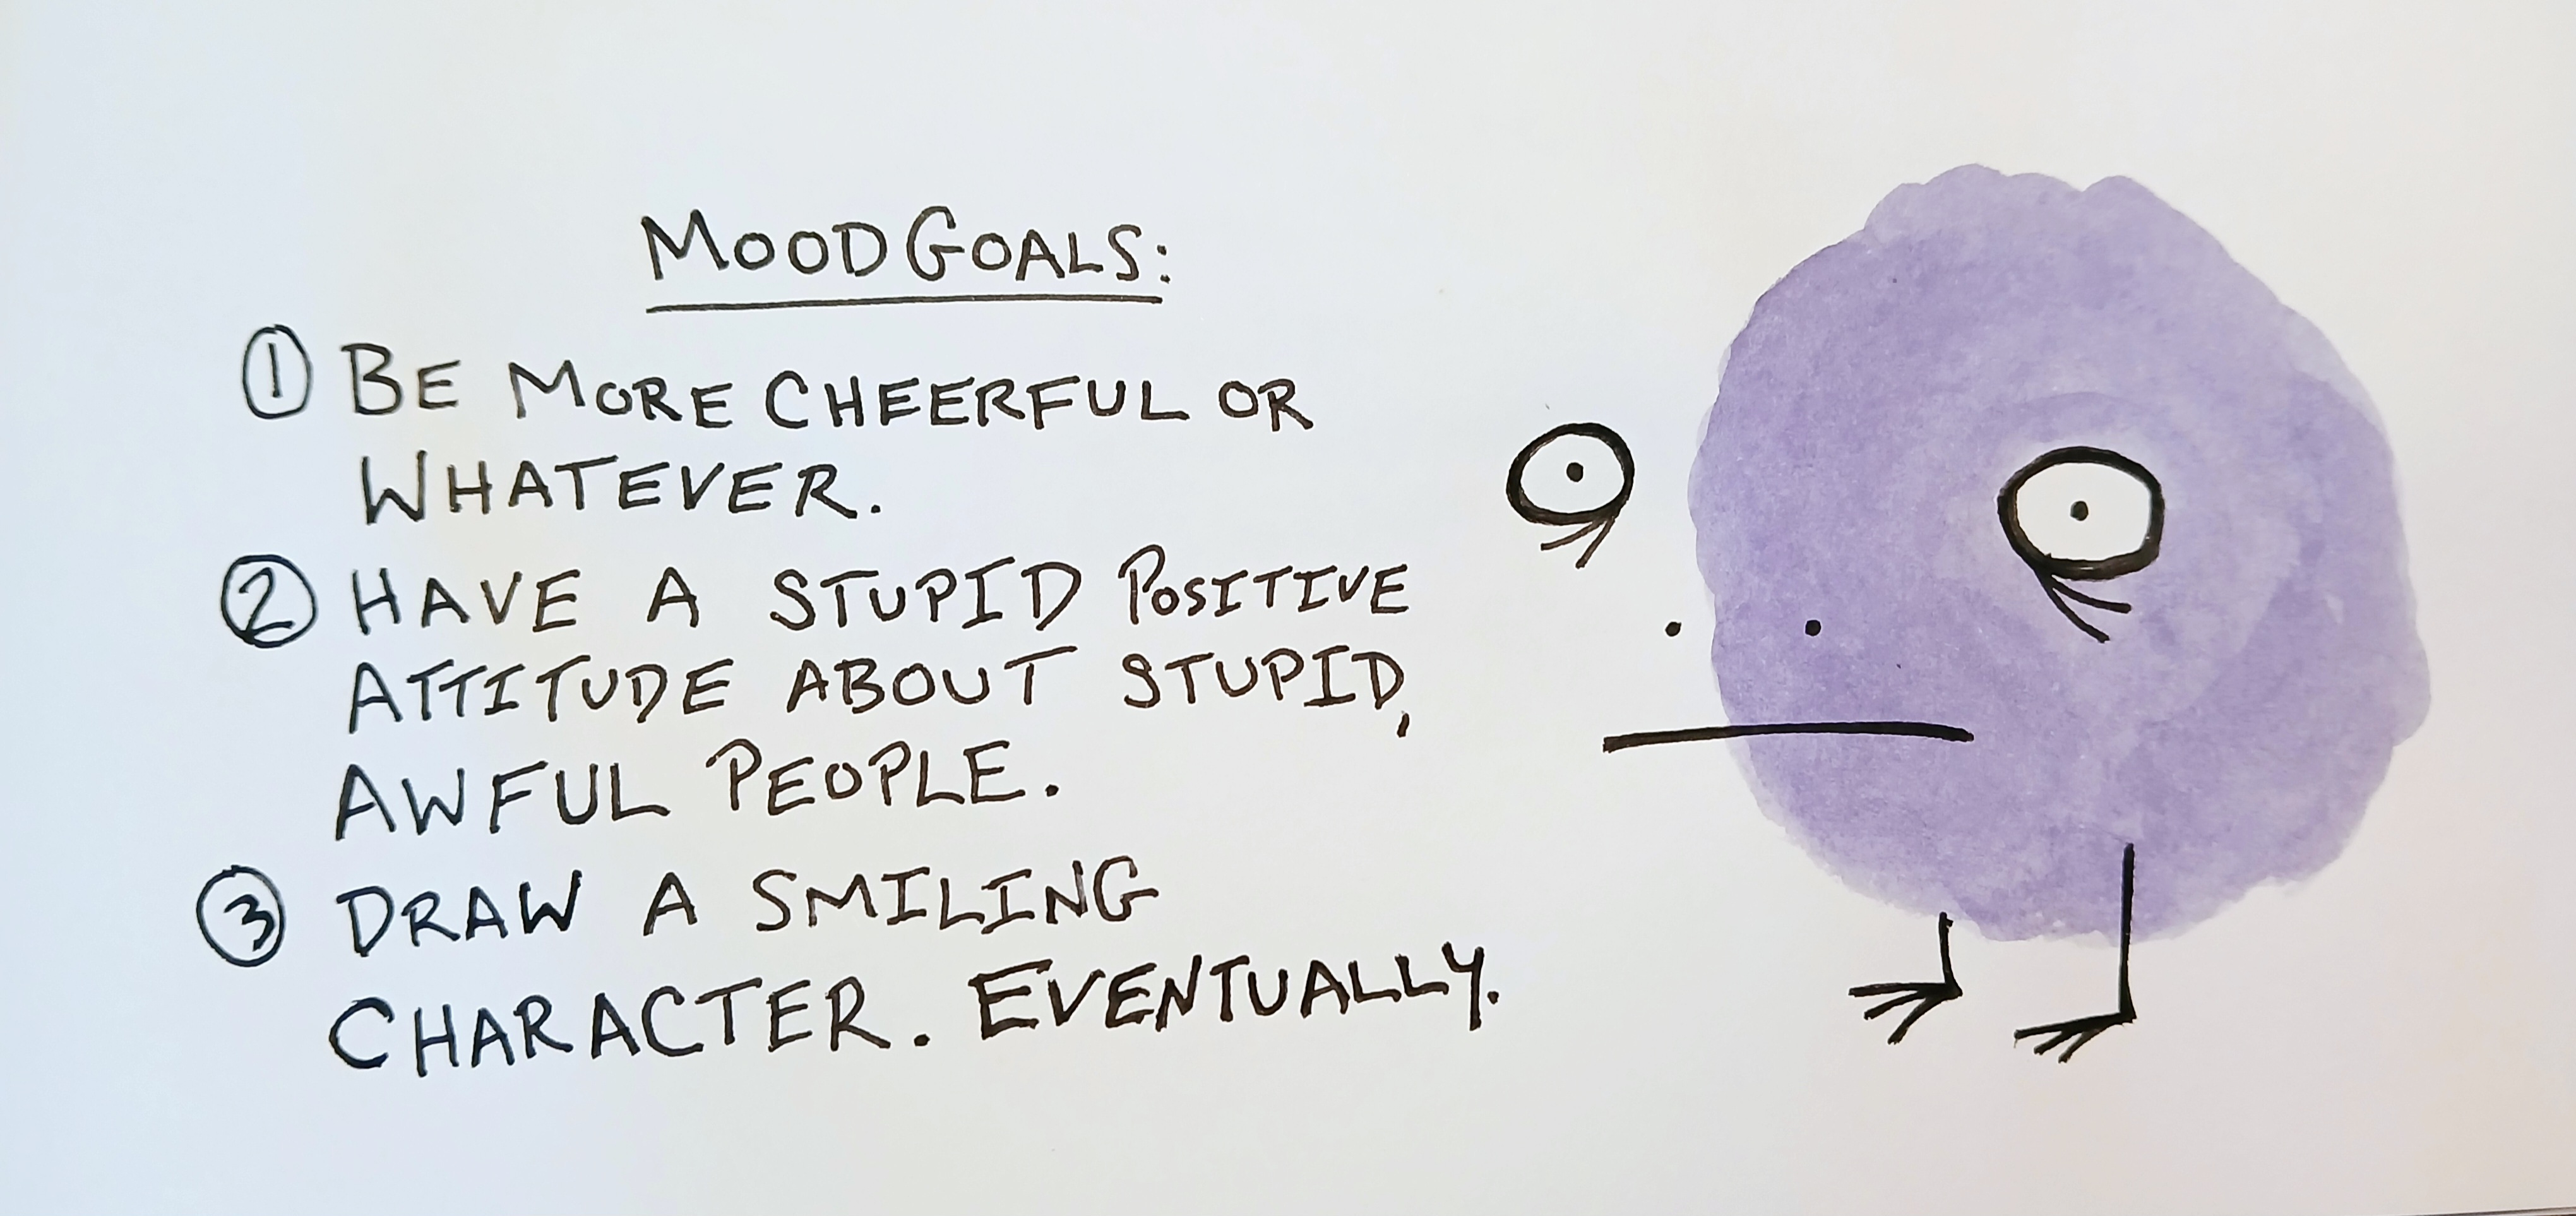 MOOD GOALS:
① BE MORE CHEERFUL OR
WHATEVER.
② HAVE A STUPID POSITIVE
ATTITUDE ABOUT STUPID,
AWFUL PEOPLE.
③ DRAW A SMILING
CHARACTER. EVENTUALLY.